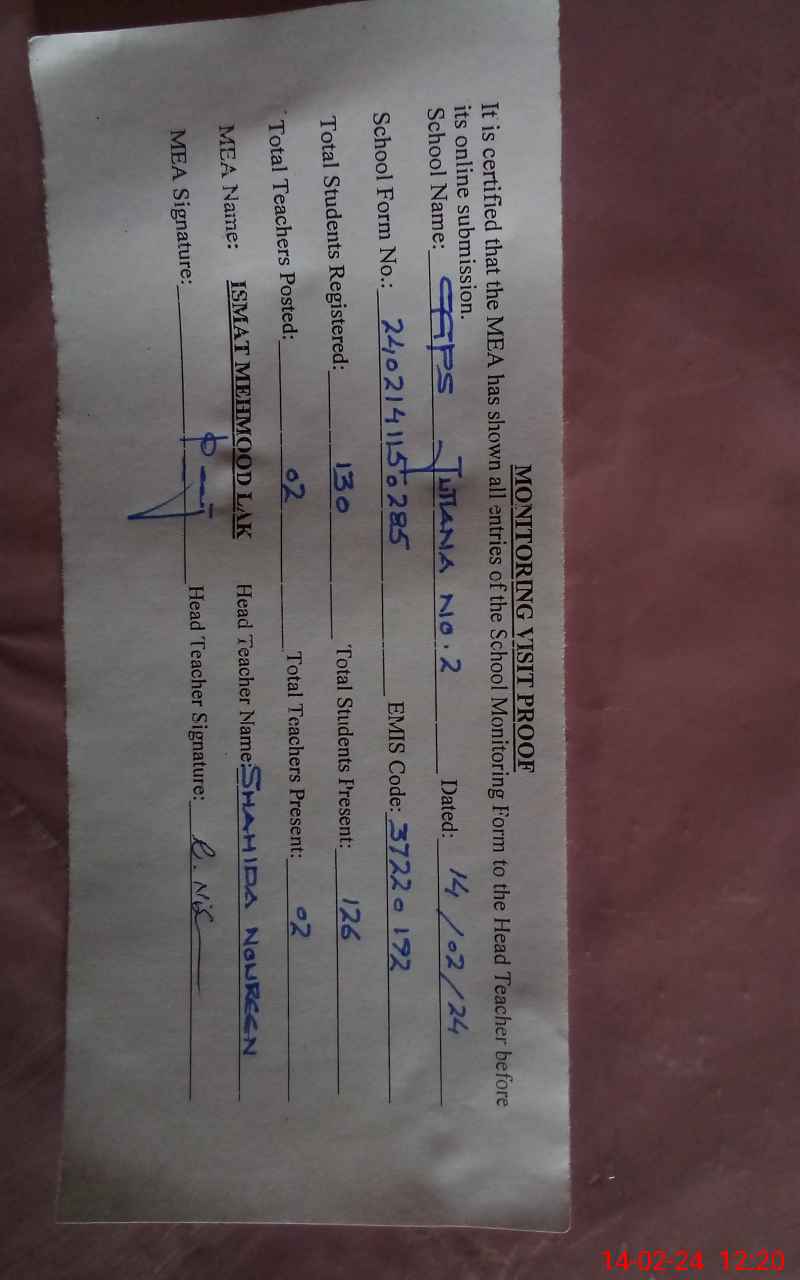 MONITORING VISIT PROOF
It is certified that the MEA has shown all entries of the School Monitoring Form to the Head Teacher before
its online submission.
School Name: GGPS JUTIANA No.2 Dated: 14/02/24
School Form No.: 2402141150285 EMIS Code: 37220192
Total Students Registered: 130 Total Students Present: 126
Total Teachers Posted: 02 Total Teachers Present: 02
MEA Name: ISMAT MEHMOOD LAK Head Teacher Name: SHAHIDA NOUREEN
MEA Signature: Head Teacher Signature:
14-02-24 12:20